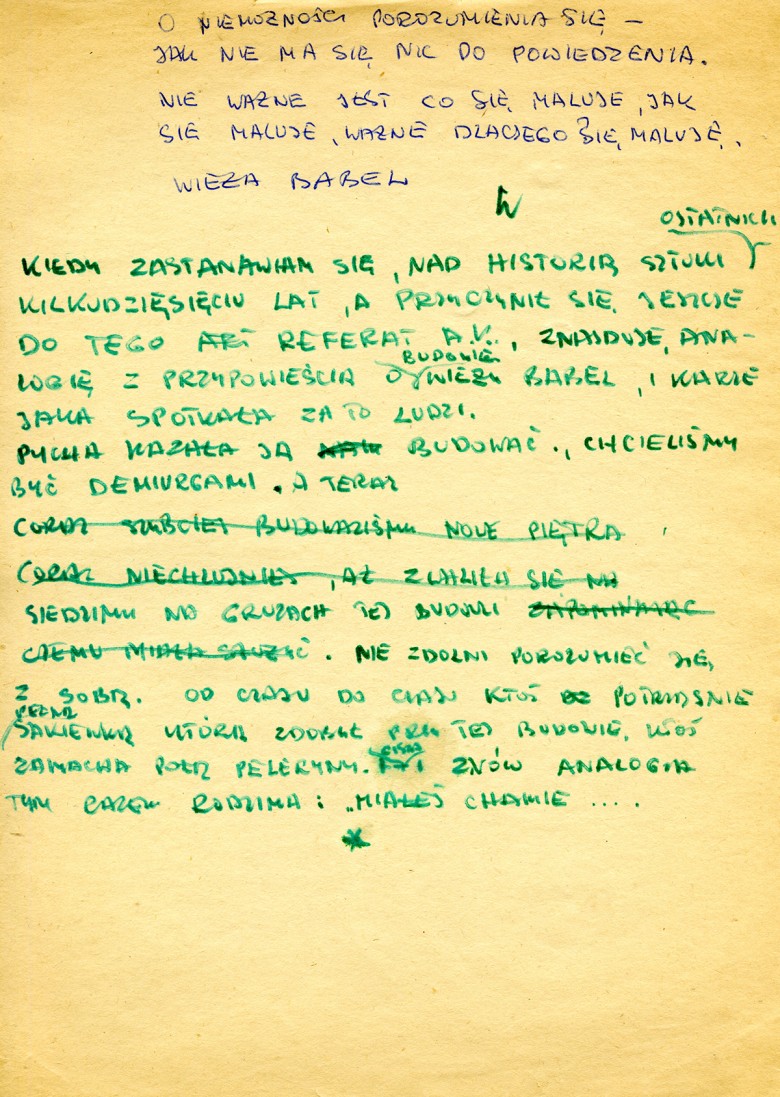 O NIEMOŻNOŚCI POROZUMIENIA SIĘ –
JAK NIE MA SIĘ NIC DO POWIEDZENIA.
NIE WAŻNE JEST CO SIĘ MALUJE, JAK
SIĘ MALUJE, WAŻNE DLACZEGO SIĘ MALUJE.
WIEŻA BABEL
OSTATNICH
KIEDY ZASTANAWIAM SIĘ, NAD HISTORIĄ SZTUKI
KILKUDZIĘSIĘCIU LAT, A PRZYCZYNIŁ SIĘ JESZCZE
DO TEGO ART REFERAT A.V., ZNAJDUJĘ, ANA-
BUDOWIE
LOGIĘ Z PRZYPOWIEŚCIĄ O WIEŻY BABEL, I KARZE
JAKA SPOTKAŁA ZA TO LUDZI.
PYCHA KAZAŁA JĄ NAM BUDOWAĆ., CHCIELIŚMY
BYĆ DEMIURGAMI. A TERAZ
CORAZ SZYBCIEJ BUDOWALIŚMY NOWE PIĘTRA
CORAZ NIECHLUJNIEJ, AŻ ZWALIŁA SIĘ NA
SIEDZIMY NA GRUZACH TEJ BUDOWLI ZAPOMINAJĄC
CZEMU MIAŁA SŁUŻYĆ. NIE ZDOLNI POROZUMIEĆ SIĘ,
Z SOBĄ. OD CZASU DO CZASU KTOŚ POTRZĄŚNIE
PEŁNĄ
SAKIEWKĄ KTÓRĄ ZDOBYŁ PRZY TEJ BUDOWIE, KTOŚ
CISKA
ZAMACHA POŁĄ PELERYNY. I ZNÓW ANALOGIA
TYM RAZEM RODZIMA: „MIAŁEŚ CHAMIE ....
*